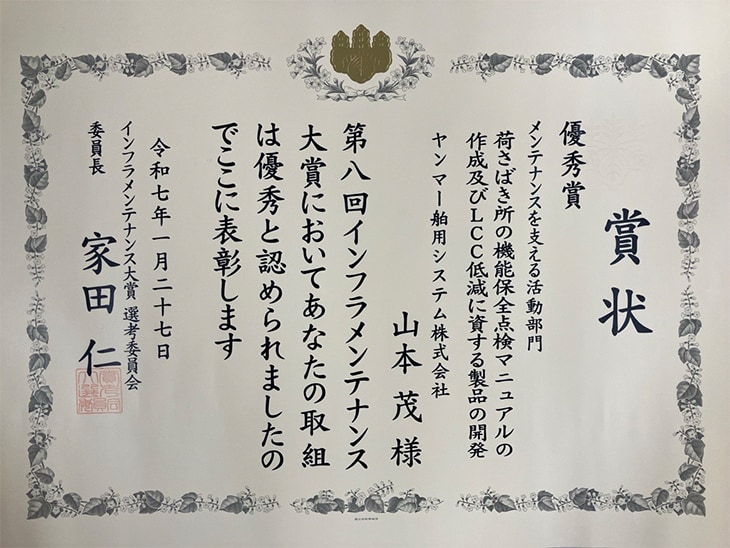 賞状
優秀賞
メンテナンスを支える活動部門
荷さばき所の機能保全点検マニュアルの
作成及びLCC低減に資する製品の開発
ヤンマー舶用システム株式会社
山本茂様
第八回インフラメンテナンス
大賞においてあなたの取組
は優秀と認められましたの
でここに表彰します
令和七年一月二十七日
インフラメンテナンス大賞 選考委員会
委員長
家田仁